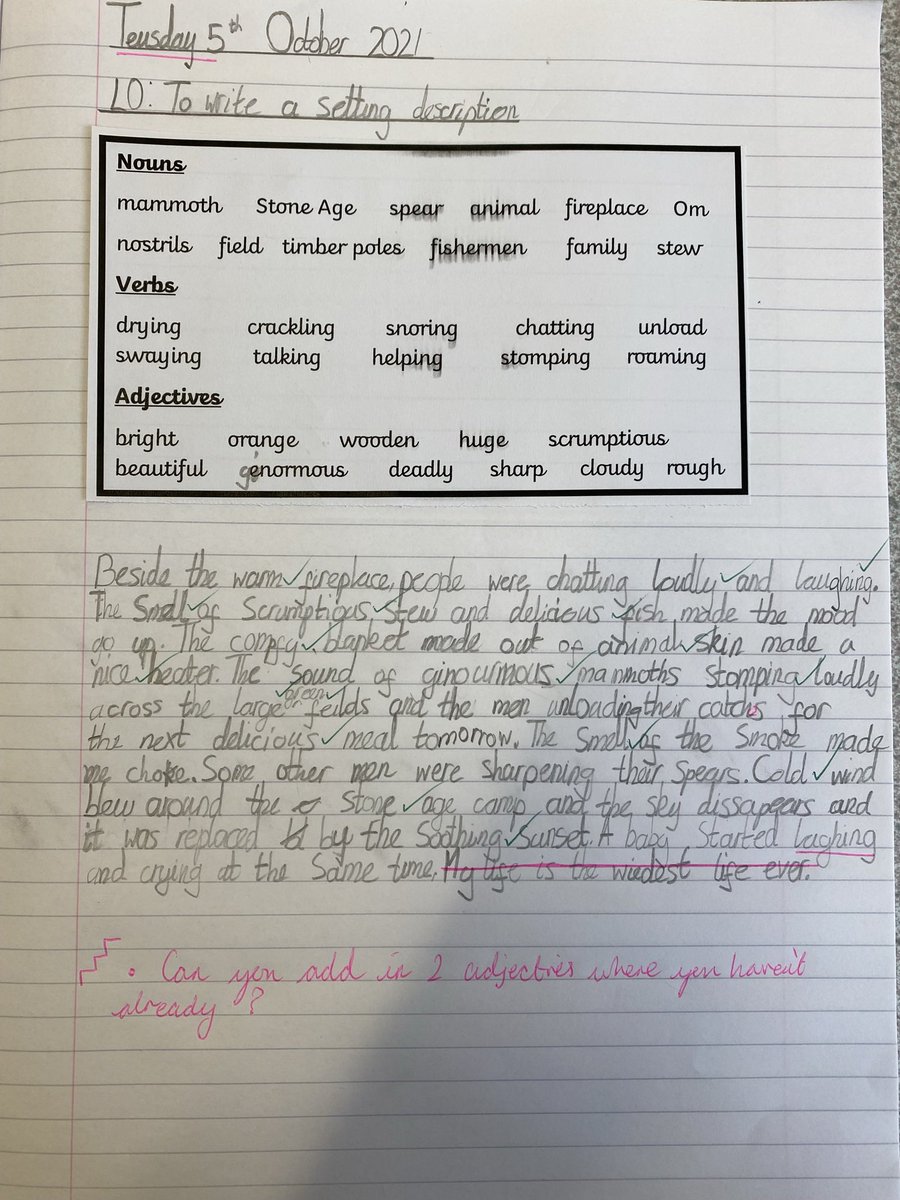 Teusday 5th October 2021
LO: To write a setting description
Nouns
mammoth Stone Age spear animal fireplace Om
nostrils field timber poles fishermen family stew
Verbs
drying crackling snoring chatting unload
swaying talking helping stomping roaming
Adjectives
bright orange wooden huge scrumptious
beautiful genormous deadly sharp cloudy rough
Beside the warm fireplace, people were chatting loudly and laughing.
The Smell of Scrumptious Stew and delicious fish, made the mood
go up. The compfy blanket made out of animal skin made a
nice heater. The sound of ginourmous mammoths stomping loudly
across the large green feilds and the men unloading their catchs for
the next delicious meal tomorrow. The Smell of the Smoke made
me choke. Some other men were sharpening their Spears. Cold wind
blew around the Stone age camp and the sky dissapears and
it was replaced by the Soothing Sunset. A baby Started laghing
and crying at the Same time. My life is the wiedest life ever.
• Can you add in 2 adjectives where you haven't
already?